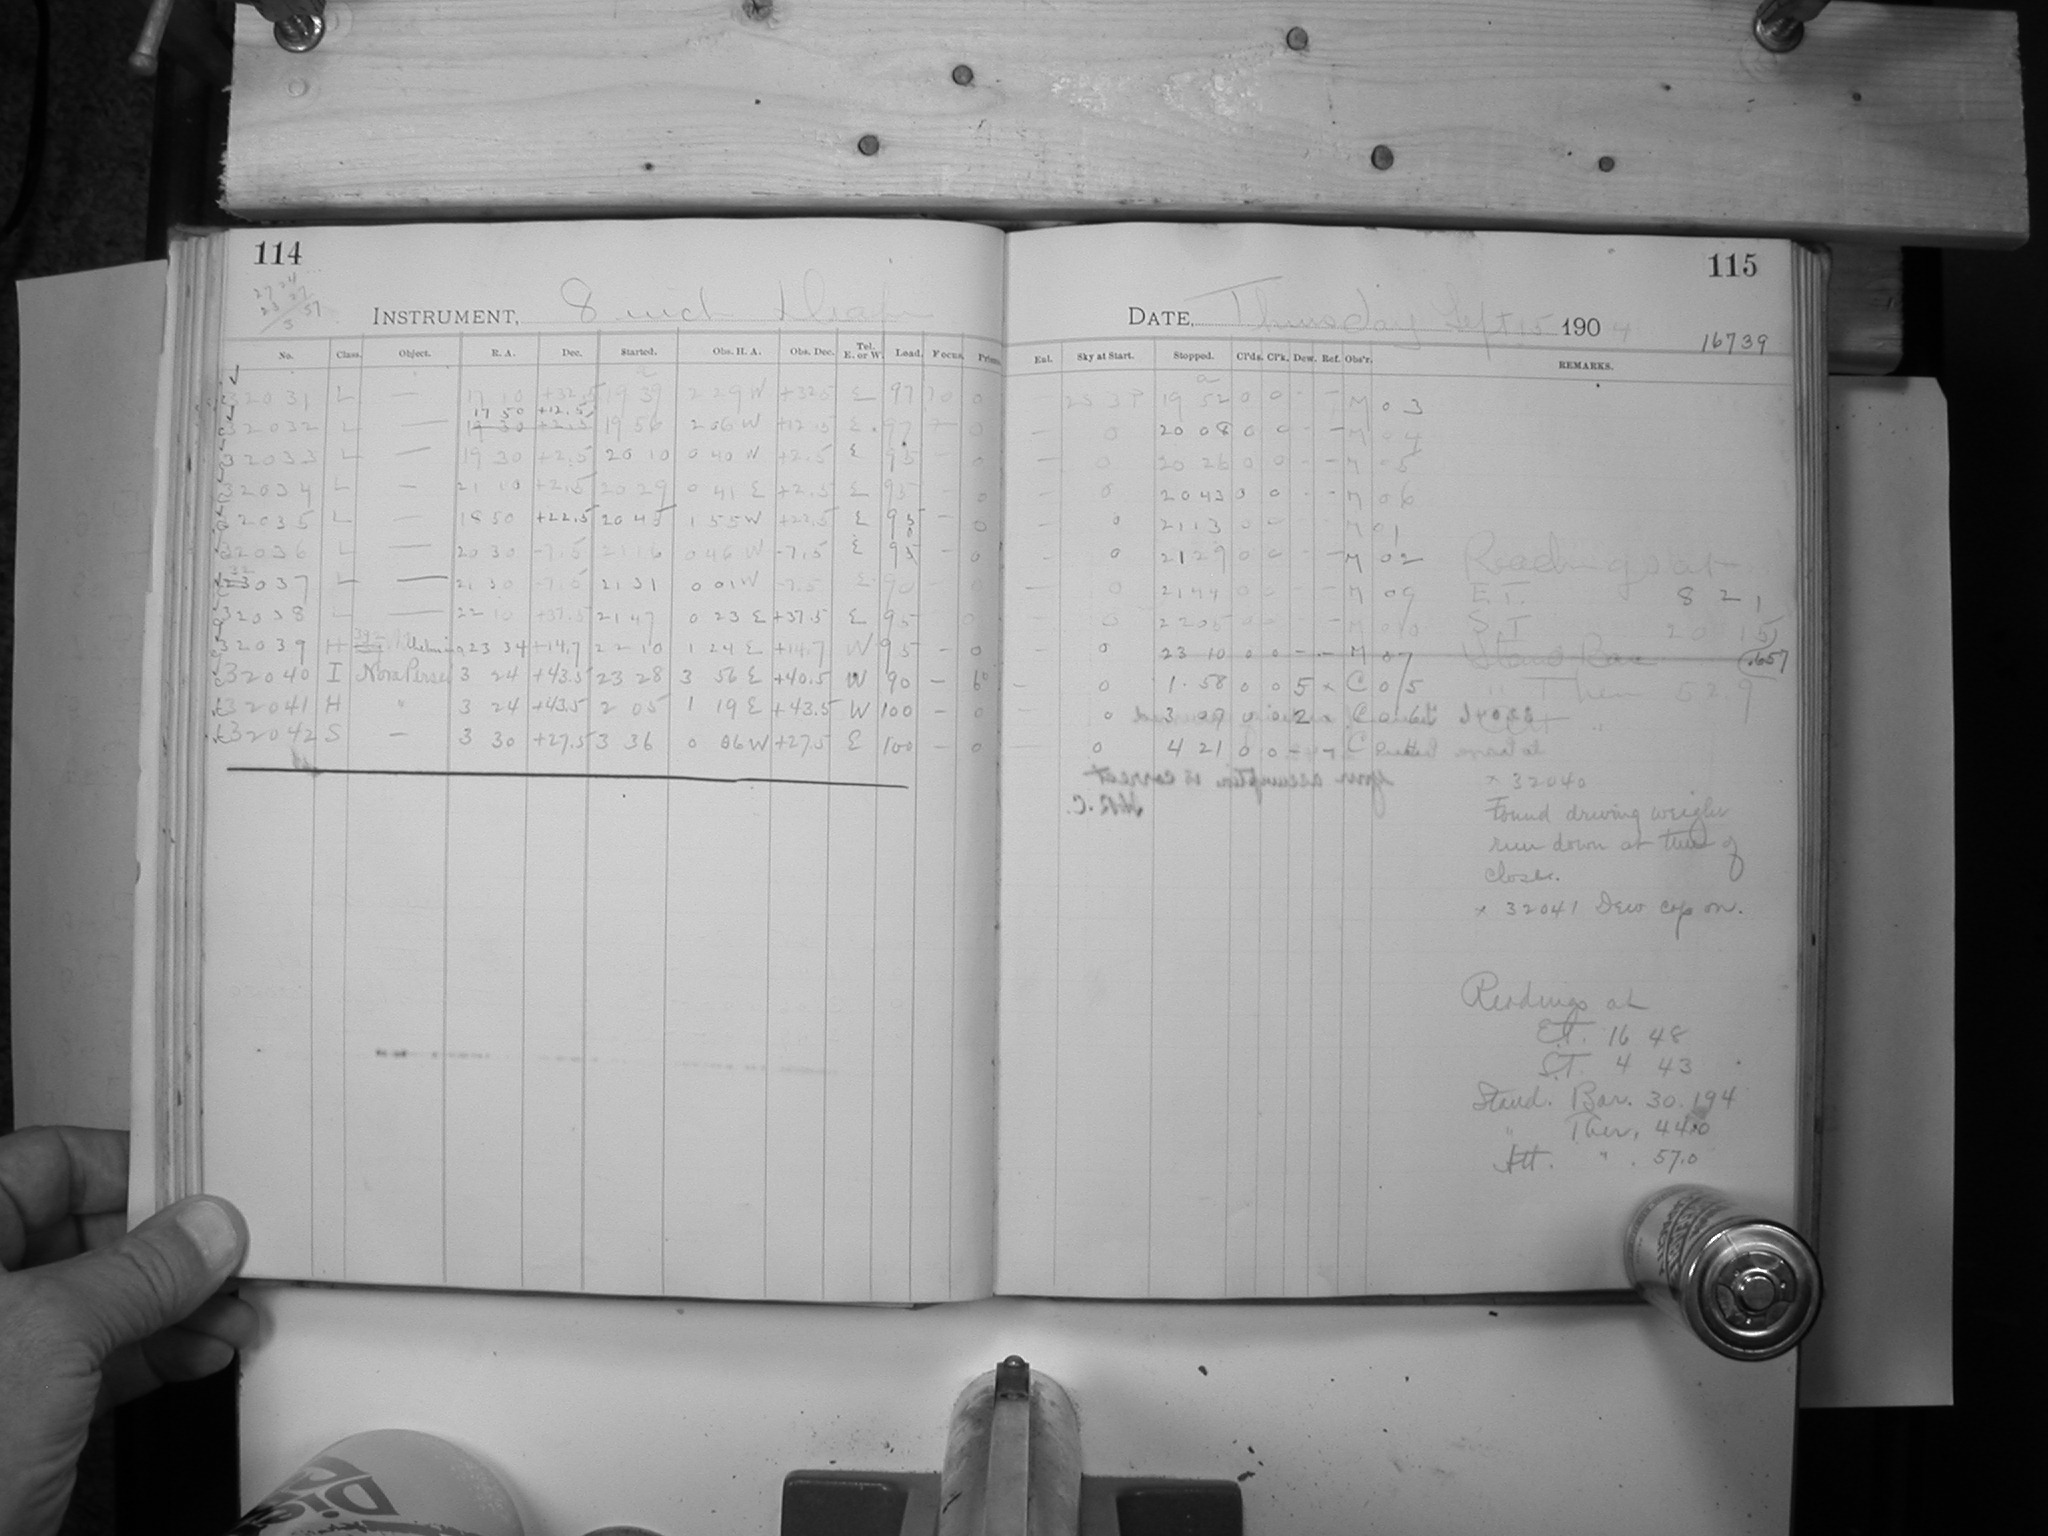 114
27 24
23 27
3 57
INSTRUMENT, 8 inch Draper
No. Class. Object. R. A. Dec. Started. Obs. H. A. Obs. Dec. Tel. E. or W. Load. Focus. Prism.
32031 L — 17 10 +32.5 19 39 2 29 W +32.5 E 97 70 0
17 50 +12.5
32032 L — 19 30 +2.5 19 56 2 06 W +12.5 E 97 — 0
32033 L — 19 30 +2.5 20 10 0 40 W +2.5 E 95 - 0
32034 L — 21 10 +2.5 20 29 0 41 E +2.5 E 95 - 0
32035 L — 18 50 +22.5 20 45 1 55 W +22.5 E 95 - 0
32036 L — 20 30 -7.5 21 16 0 46 W -7.5 E 95 - 0
32
23037 L — 21 30 -7.5 21 31 0 01 W -7.5 E 90 0
32038 L — 22 10 +37.5 21 47 0 23 E +37.5 E 95 - 0
32039 H 23 34 +14.7 22 10 1 24 E +14.7 W 95 - 0
32040 I Nova Persei 3 24 +43.5 23 28 3 56 E +40.5 W 90 -
32041 H " 3 24 +43.5 2 05 1 19 E +43.5 W 100 - 0
32042 S — 3 30 +27.5 3 36 0 06 W +27.5 E 100 - 0
115
DATE, Thursday Sept 15 1904
16739
Eul. Sky at Start. Stopped. Cl'ds. Cl'k. Dew. Ref. Obs'r. REMARKS.
19 52 0 0 - - M 03
- 0 20 08 0 0 - - M 04
- 0 20 26 0 0 - - M 05
- 0 20 43 0 0 - - M 06
0 21 13 0 0 - - M 01
- 0 21 29 0 0 - - M 02
Readings at
- 0 21 44 0 0 - - M 09
E.T. 8 21
0 22 05 0 0 - - M
S.T. 20 15
0 23 10 0 0 - - M 07
Stand Bar .657
- 0 1.58 0 0 5 x C 05
" Ther 52.9
- 0 3 07 0 0 2 C 06
Att "
- 0 4 21 0 0 - - C
x 32040
Found driving weight
run down at time of
close.
x 32041 Dew cap on.
your assumption is correct
H.R.C.
Readings at
E.T. 16 48
S.T. 4 43
Stand. Bar. 30.194
" Ther. 44.0
Att. " . 57.0